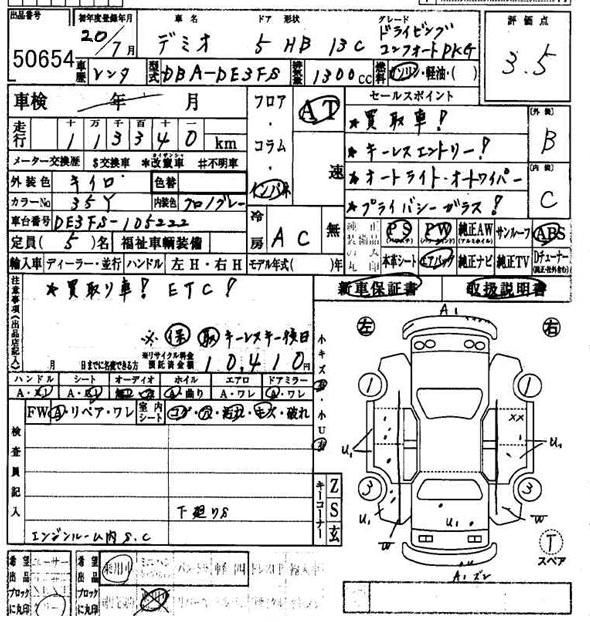 出品番号 初年度登録年月 車名 ドア 形状 グレード 評価点
50654 20/7月 デミオ 5 HB 13C ドライビング コンフォートPKG 3.5
車歴 レンタ 型式 DBA-DE3FS 排気量 1300cc 燃料 ガソリン・軽油・( )
車検 年 月 フロア・コラム・インパネ AT 速 セールスポイント
走行 十 万 千 百 十 一
113340 km
★買取車! 外装 B
★キーレスエントリー!
★オートライト・オートワイパー 内装 C
★プライバシーガラス!
メーター交換歴 $交換車 *改重車 #不明車
外装色 キイロ 色替
カラーNo 35Y 内装色 クロ/グレー
車台番号 DE3FS-105222 冷房 AC 無
定員(5)名 福祉車輌装備
純正装備品の丸印 PS PW 純正AW サンルーフ ABS
本革シート エアバック 純正ナビ 純正TV Dチューナー
輸入車 ディーラー・並行 ハンドル 左H・右H モデル年式( )年
新車保証書 取扱説明書
注意事項(出品店記入)
★買取り車! ETC!
※保 取 キーレスキー後日
月 日までに名変できる方 ※リサイクル料金預託済金額 10,410円
小キズ・小U
ハンドル シート オーディオ ホイル エアロ ドアミラー
FW A・リペア・ワレ 室内シート コゲ・穴・汚れ・キズ・破れ
検査員記入
下廻りS
エンジンルーム内S.C
キーコーナー Z S 玄
左 右
A1
1 1
XX
U1 U1
3 3
U1 U1 W
W
A1ズレ
T スペア
希望出品ブロックに丸印 希望出品ブロックに丸印